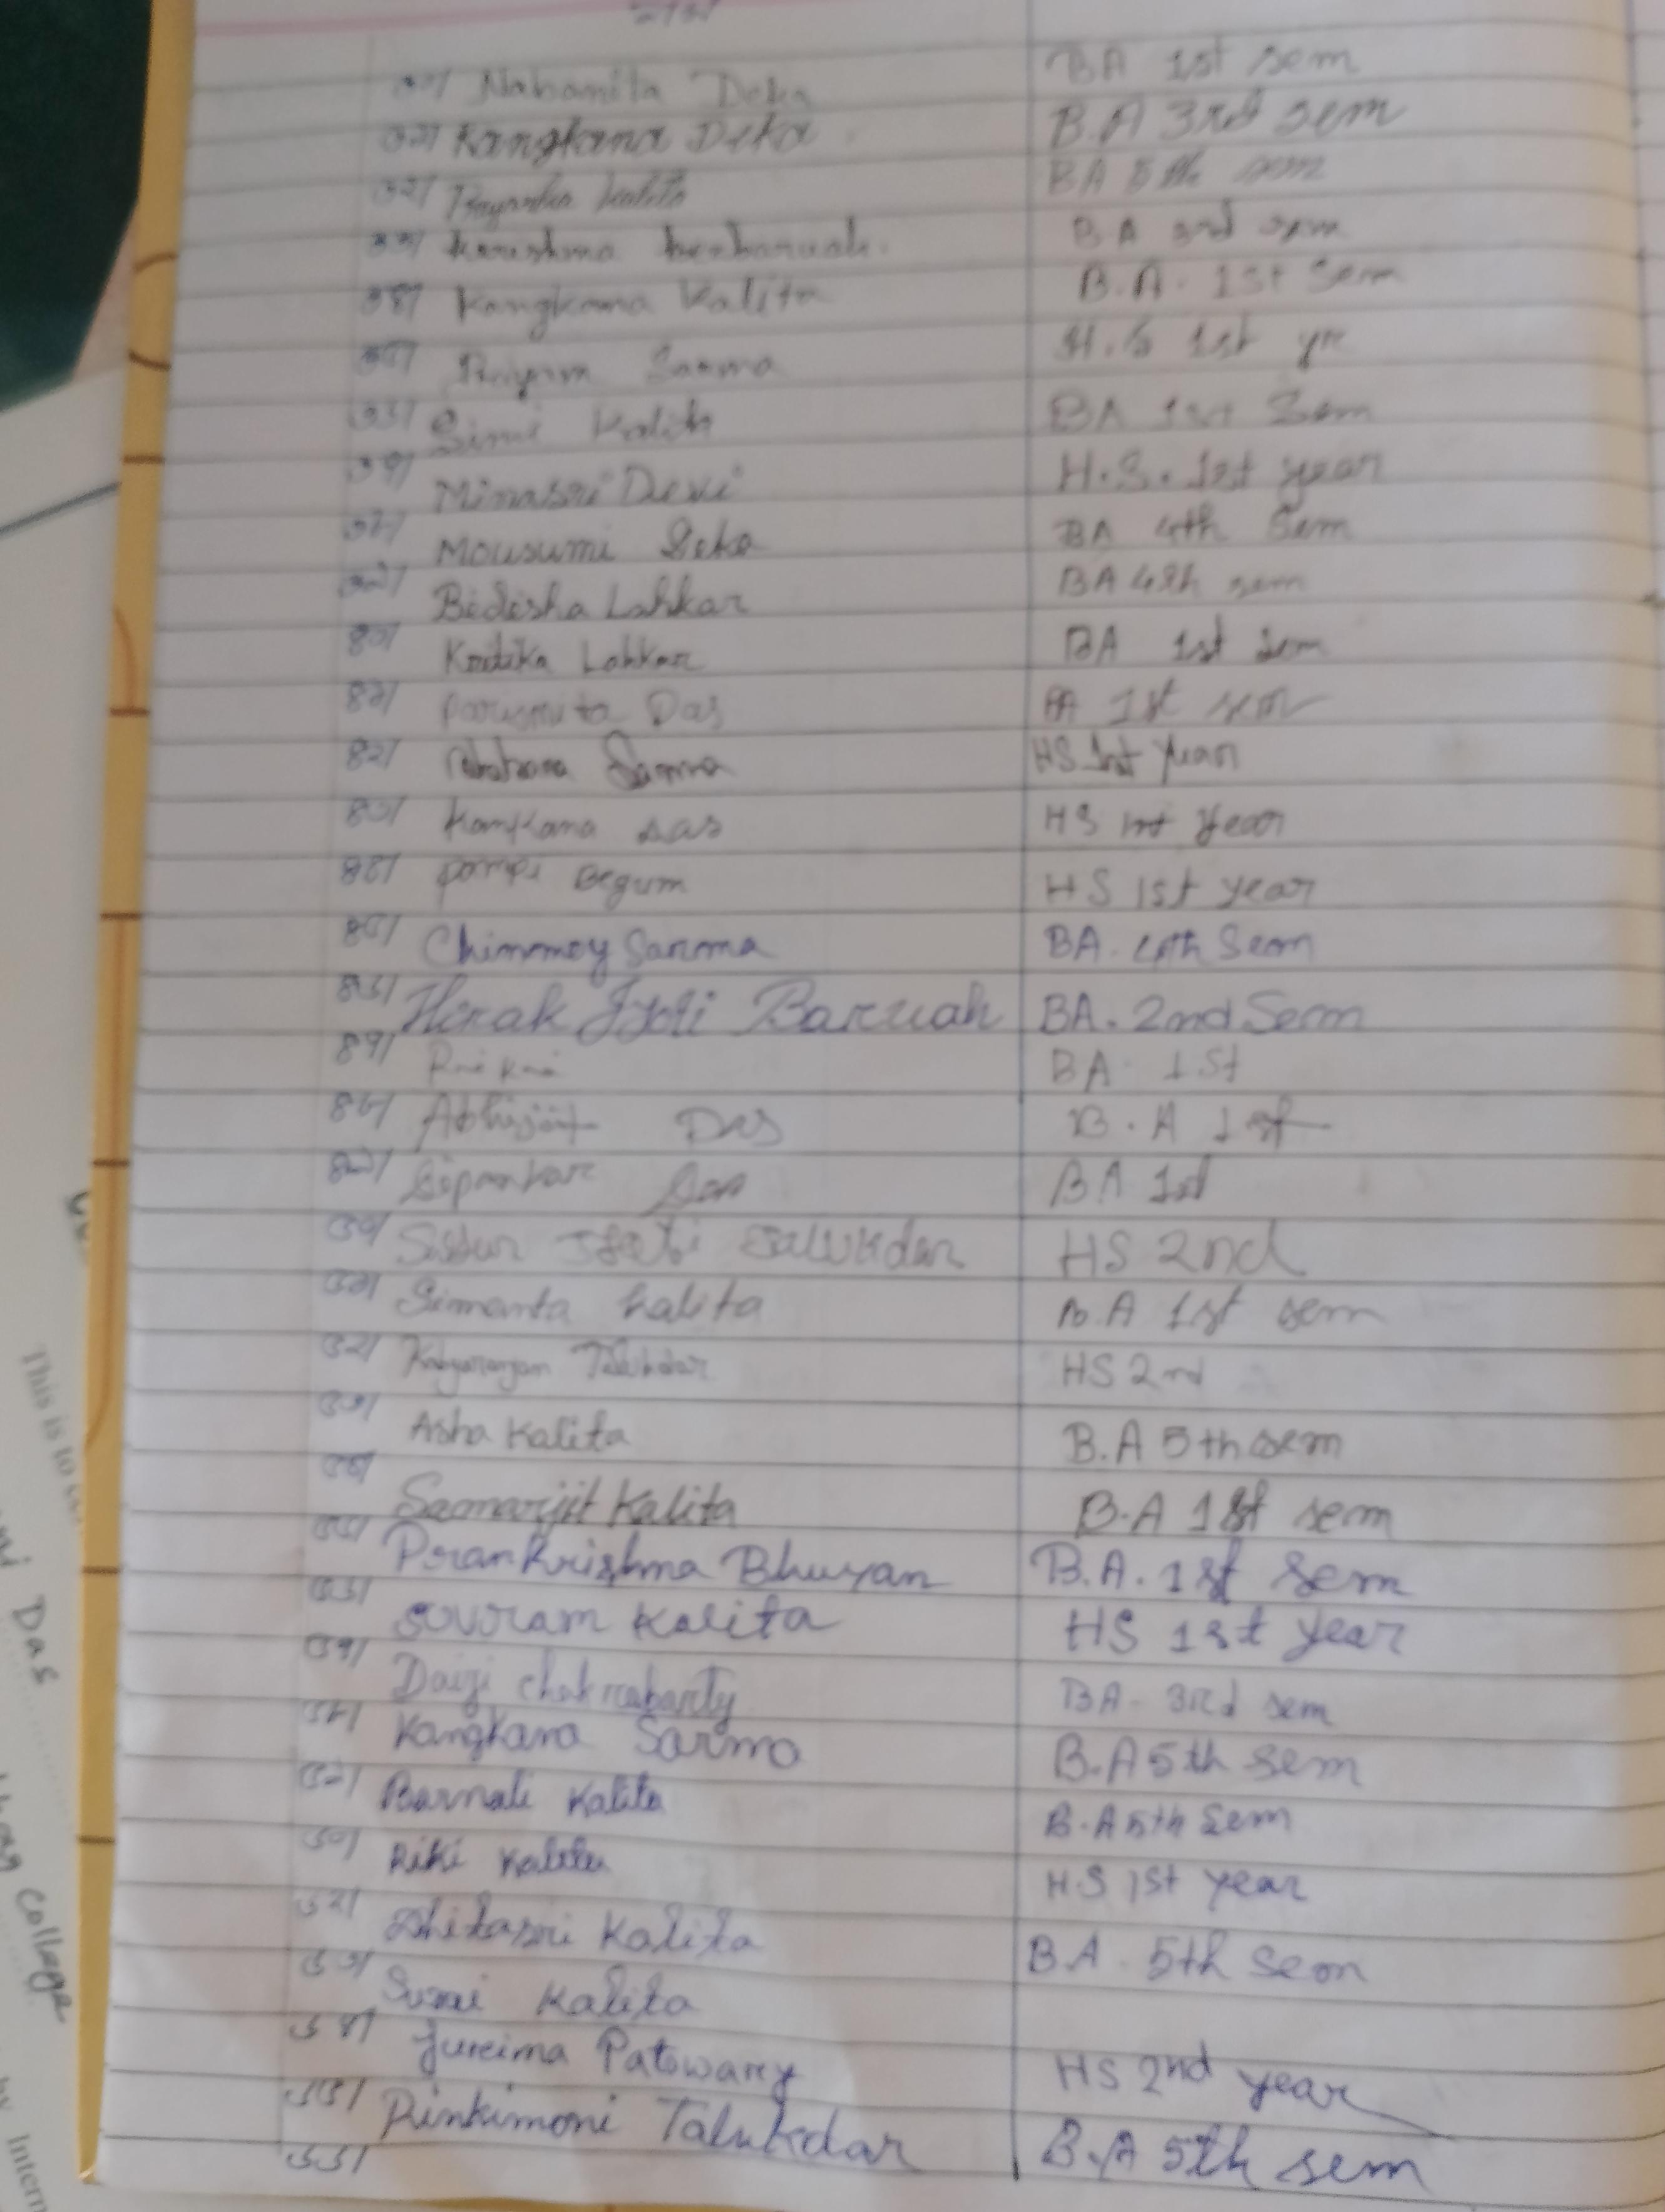 ৩০/ Nabamita Deka BA 1st sem
৩১/ Kangkana Deka B.A 3rd sem
৩২/ Priyanka Kalita BA 5th sem
৩৩/ Karishma BA 3rd sem
৩৪/ Kangkana Kalita B.A. 1st Sem
৩৫/ Sarma H.S 1st yr
৩৬/ Simi Kalita BA 1st Sem
৩৭/ Minasri Devi H.S. 1st year
৩৮/ Mousumi Deka BA 4th Sem
৩৯/ Bidisha Lahkar BA 4th sem
৪০/ Kritika Lahkar BA 1st Sem
৪১/ Parismita Das BA 1st sem
৪২/ Sarma HS 1st Year
৪৩/ Kankana Das HS 1st Year
৪৪/ Pompi Begum HS 1st year
৪৫/ Chinmoy Sarma BA. 4th Sem
৪৬/ Hirak Jyoti Baruah BA. 2nd Sem
৪৭/ BA 1st
৪৮/ Abhijit Das B.A 1st
৪৯/ Dipankar Das BA 1st
৫০/ Talukdar HS 2nd
৫১/ Simanta Kalita B.A 1st sem
৫২/ Talukdar HS 2nd
৫৩/ Asha Kalita B.A 5th sem
৫৪/ Samarjit Kalita B.A 1st sem
৫৫/ Prankrishna Bhuyan B.A. 1st sem
৫৬/ Kalita HS 1st year
৫৭/ Daizi Chakrabarty BA - 3rd sem
৫৮/ Kangkana Sarma B.A 5th sem
৫৯/ Barnali Kalita B.A 5th Sem
৬০/ Riki Kalita H.S 1st year
৬২/ Dhitasri Kalita B.A. 5th sem
৬৩/ Kalita
৬৪/ Patowary HS 2nd year
৬৫/ Rinkimoni Talukdar B.A 5th sem
৬৬/
This is to
Das
College
Intern